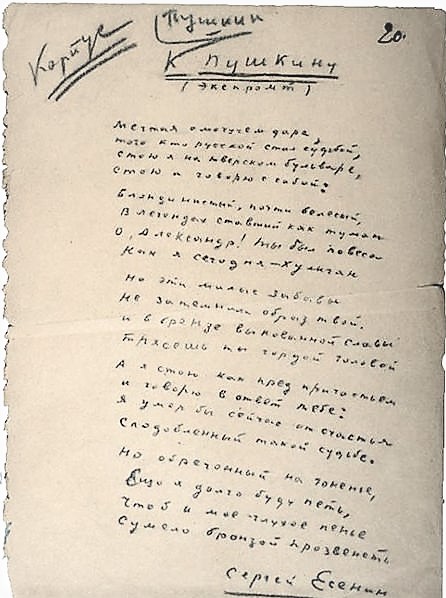 Корпус
Пушкин
20.
К Пушкину
(Экспромт)
Мечтая о могучем даре,
того кто русской стал судьбой,
стою я на тверском бульваре,
стою и говорю с собой:
Блондинистый, почти белесый,
В легендах ставший как туман
О, Александр! Ты был повеса
Как я сегодня – хулиган
Но эти милые забавы
Не затемнили образ твой.
и в бронзе выкованной славы
трясешь ты гордой головой
А я стою как пред причастьем
и говорю в ответ тебе:
Я умер бы сейчас от счастья
Сподобленный такой судьбе.
Но обреченный на гоненье,
Ещо я долго буду петь,
Чтоб и мое глухое пенье
Сумело бронзой прозвенеть
Сергей Есенин